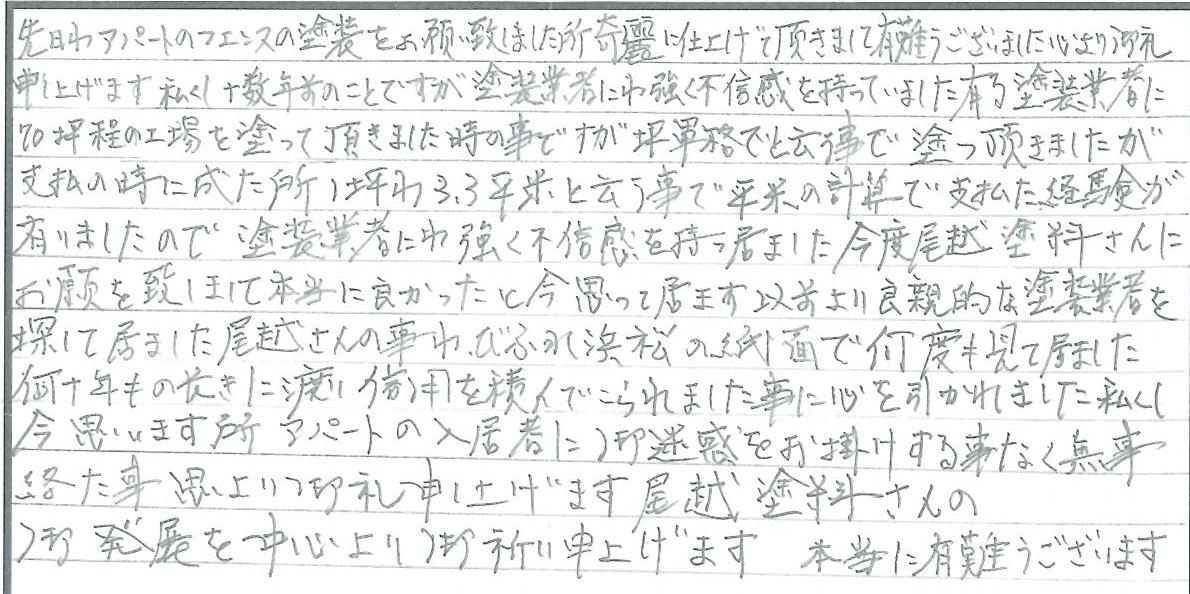 先日わアパートのフェンスの塗装をお願い致しました所奇靈に仕上げて頂きまして有難うございました心より御礼
申し上げます私くし十数年前のことですが塗装業者にわ強く不信感を持っていました有る塗装業者に
70坪程の工場を塗って頂きました時の事ですが坪単格でと云う事で塗っ頂きましたが
支払の時に成た所1坪わ3.3平米と云う事で平米の計算で支払た経験が
有りましたので塗装業者にわ強く不信感を持っ居ました今度尾越塗料さんに
お願を致しまして本当に良かったと今思って居ます以前より良親的な塗装業者を
探して居ました尾越さんの事わ、びぶれ浜松の紙面で何度も見て居ました
何十年もの長きに渡り信用を積んでこられました事に心を引かれました私くし
今思います所アパートの入居者に御迷惑をお掛けする事なく無事
終た事思より御礼申し上げます尾越塗料さんの
御発展を中心より御祈り申上げます 本当に有難うございます